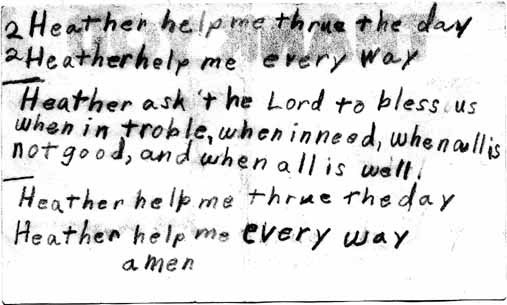 2 Heather help me thrue the day
2 Heather help me every way
Heather ask the Lord to bless us
when in troble, when in need, when all is
not good, and when all is well.
Heather help me thrue the day
Heather help me every way
amen